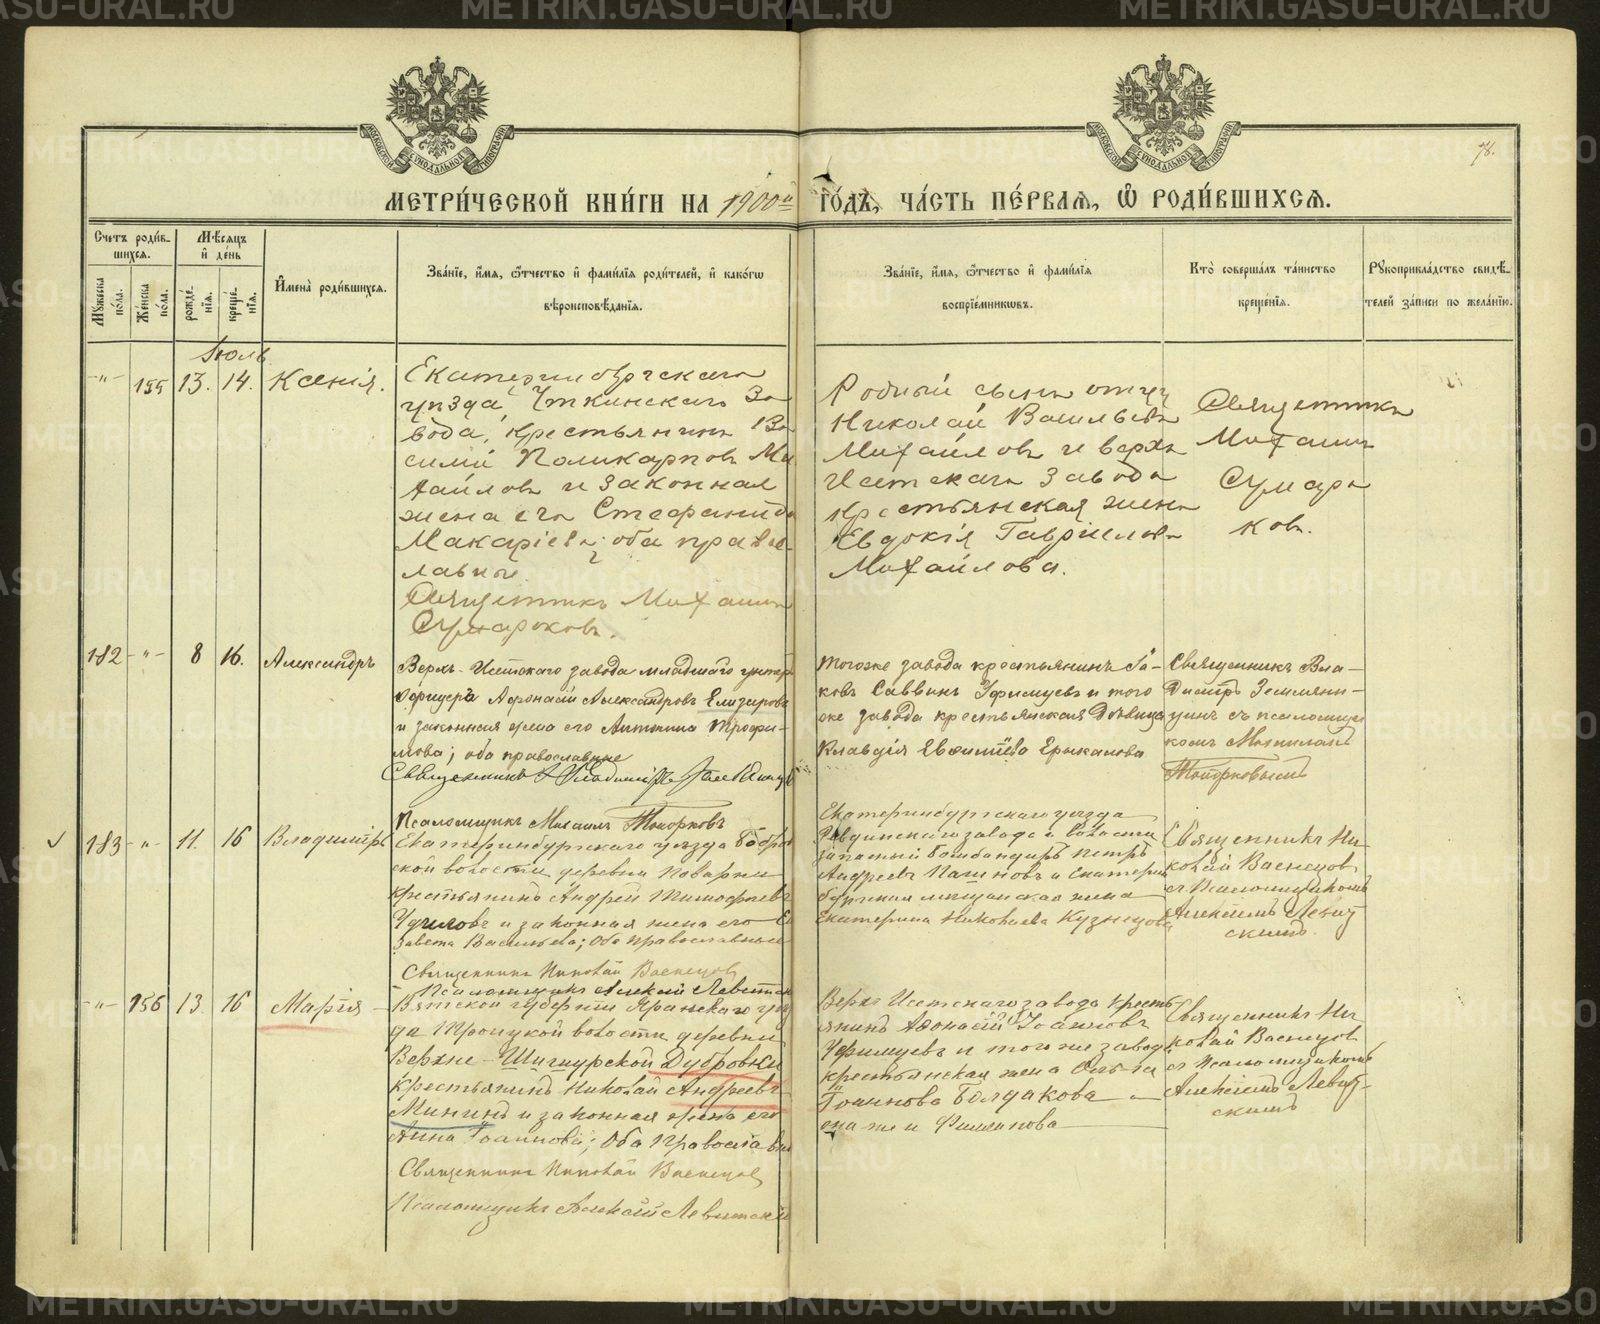 METRIKI.GASO-URAL.RU
МОСКОВСКОЙ СѴНОДАЛЬНОЙ ТИПОГРАФІИ
МОСКОВСКОЙ СѴНОДАЛЬНОЙ ТИПОГРАФІИ
78.
МЕТРИ́ЧЕСКОЙ КНИ́ГИ НА 1900й ГО́ДЪ, ЧА́СТЬ ПЕ́РВАЯ, Ѡ РОДИ́ВШИХСЯ.
Счетъ роди́в-
шихся.
Мꙋжеска по́ла.
Же́нска по́ла.
Мѣсяцъ
и́ де́нь
рожде́нїя.
креще́нїя.
И́мена роди́вшихся.
Зва́нїе, и́мя, ѻ́тчество и́ фами́лїя роди́телей, и́ како́гѡ
вѣроисповѣ́данїя.
Зва́нїе, и́мя, ѻ́тчество и́ фами́лїя
воспрїе́мникѡвъ.
Кто̀ соверша́лъ та́инство
креще́нїя.
Рꙋкоприкла́дство свидѣ́-
телей за́писи по жела́нїю.
Іюль
-"- 155 13. 14. Ксенія.
Екатеринбургскаго
уѣзда, Уткинскаго За
вода, крестьянинъ Ва
силій Поликарповъ Ми
хайловъ и законная
жена его Стефанида
Макаріева; оба право-
славные.
Священникъ Михаилъ
Сумароковъ.
Родной сынъ отцу
Николай Васильевъ
Михайловъ и Верхъ
Исетскаго завода
крестьянская жена
Евдокія Гавріилова
Михайлова.
Священникъ
Михаилъ
Сумаро
ковъ.
182 -"- 8 16. Александръ
Верхъ-Исетскаго завода младшаго унтеръ
офицеръ Афонасій Александровъ Елизаровъ
и законная жена его Антонина Трофи-
мова; оба православные
Священникъ Владиміръ Земляницынъ
Псаломщикъ Михаилъ Топорковъ
тогоже завода крестьянинъ Іа-
ковъ Саввинъ Уфимцевъ и того
же завода крестьянская дѣвица
Клавдія Евфиміева Ерыкалова
Священникъ Вла-
диміръ Земляни-
цинъ съ псаломщи
комъ Михаиломъ
Топорковымъ
183 -"- 11. 16 Владиміръ
Екатеринбургскаго уѣзда Бобров
ской волости деревни Поварни
крестьянинъ Андрей Тимофеевъ
и законная жена его Ели
завета Васильева; оба православные
Священникъ Николай Васнецовъ
Псаломщикъ Алексій Левитскій
Екатеринбургскаго уезда
Ревдинскаго завода и волости
запасный бомбандиръ Петръ
Андреевъ и Екатерин
бургская мѣщанская жена
Екатерина Николаева Кузнецова
Священникъ Ни-
колай Васнецовъ
съ Псаломщикомъ
Алексіемъ Левит
скимъ.
-"- 156 13. 16 Марія
Вятской губерніи Яранскаго уѣз
да Троицкой волости деревни
Верхне-Шигмурской Дубровки
крестьянинъ Николай Андреевъ
Мининъ и законная жена его
Анна Іоаннова; Оба Православные
Священникъ Николай Васнецовъ
Псаломщикъ Алексій Левитскій
Верхъ Исетскаго завода кресть
янинъ Афонасій Іоанновъ
Уфимцевъ и того же завода
крестьянская жена Ольга
Іоаннова Болдакова -
она же и Филипова
Священникъ Ни
колай Васнецовъ
съ Псаломщикомъ
Алексіемъ Левит-
скимъ